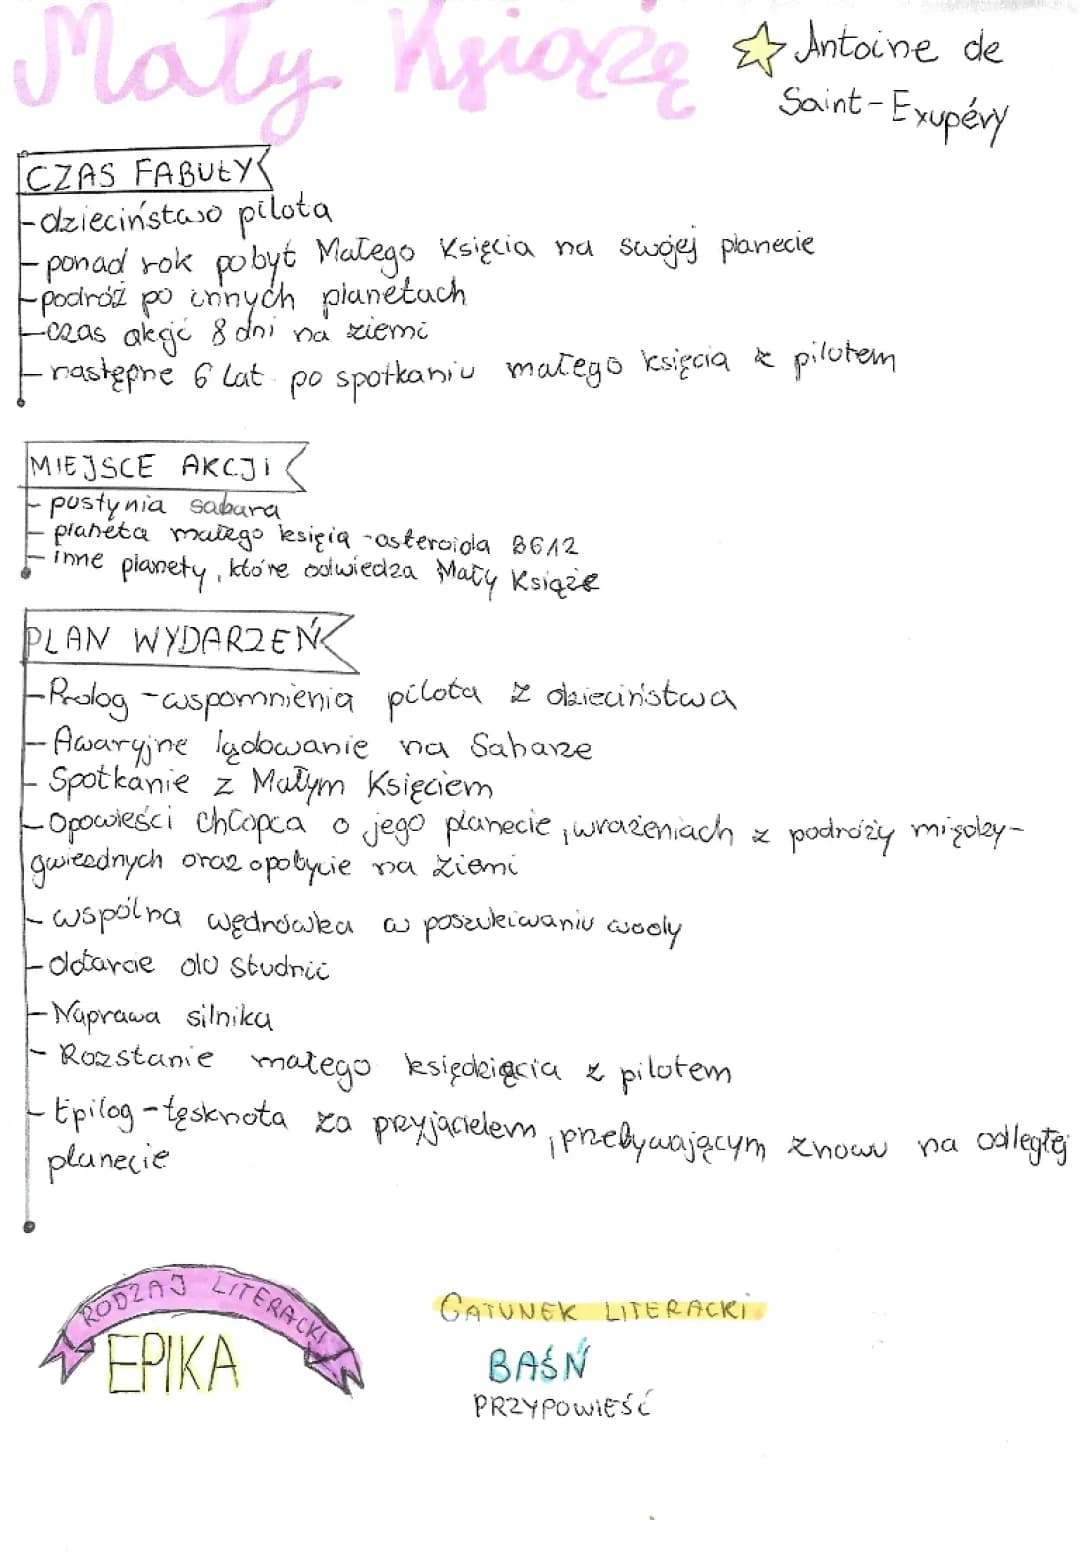 Mały Książę
Antoine de
Saint-Exupéry
CZAS FABUŁY
-dzieciństwo pilota
-ponad rok pobyt Małego Księcia na swojej planecie
-podróż po innych planetach
-czas akcji 8 dni na ziemi
-następne 6 lat po spotkaniu małego księcia z pilotem
MIEJSCE AKCJI
- pustynia sahara
- planeta małego księcia -asteroida B612
- inne planety, które odwiedza Mały Książe
PLAN WYDARZEŃ
-Prolog -wspomnienia pilota z dzieciństwa
- Awaryjne lądowanie na Saharze
- Spotkanie z Małym Księciem
-Opowieści chłopca o jego planecie, wrażeniach z podróży między-
gwiezdnych oraz opobycie na ziemi
- wspólna wędrówka w poszukiwaniu wody
-dotarcie do studni
-Naprawa silnika
- Rozstanie małego księdzięcia z pilotem
- Epilog -tęsknota za przyjacielem, przebywającym znowu na odległej
planecie
RODZAJ LITERACKI
EPIKA
GATUNEK LITERACKI
BAŚŃ
PRZYPOWIEŚĆ